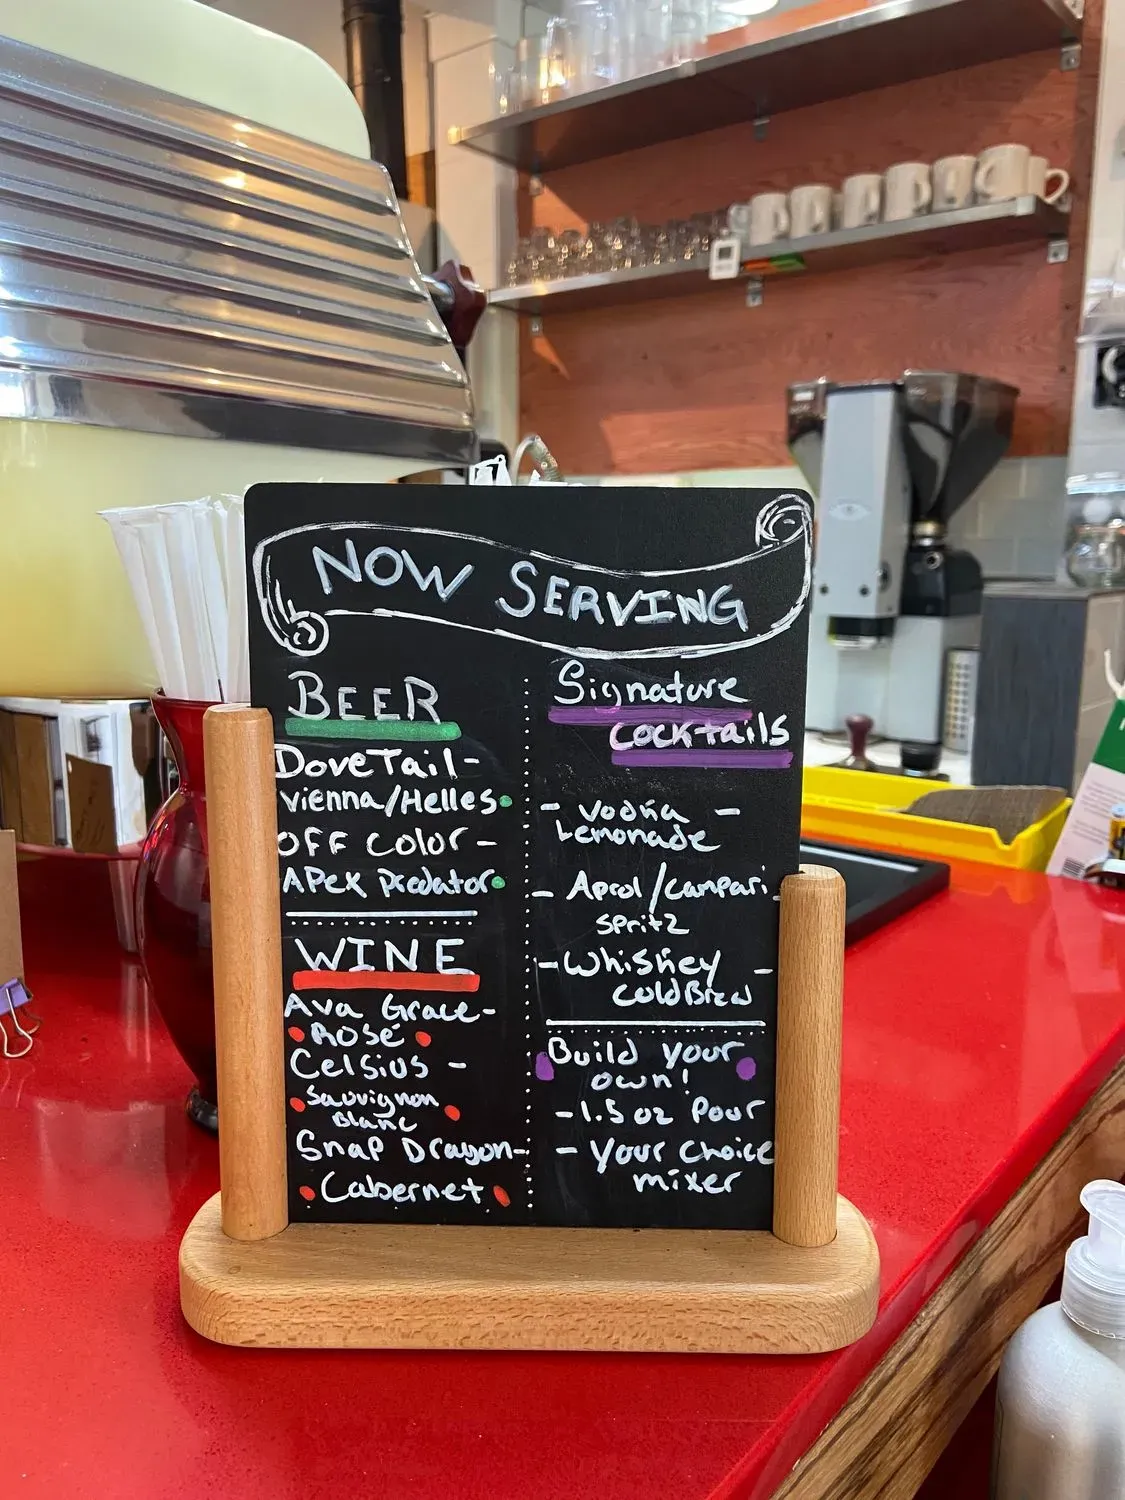 NOW SERVING
BEER
DoveTail-
Vienna/Helles
OFF Color -
APEX Predator
WINE
Ava Grace-
Rosé
Celsius -
Sauvignon
Blanc
Snap Dragon-
Cabernet
Signature
Cocktails
- Vodka -
Lemonade
- Aprol/Campari
Spritz
- Whiskey -
Cold Brew
Build your
own!
- 1.5 oz Pour
- Your Choice
mixer